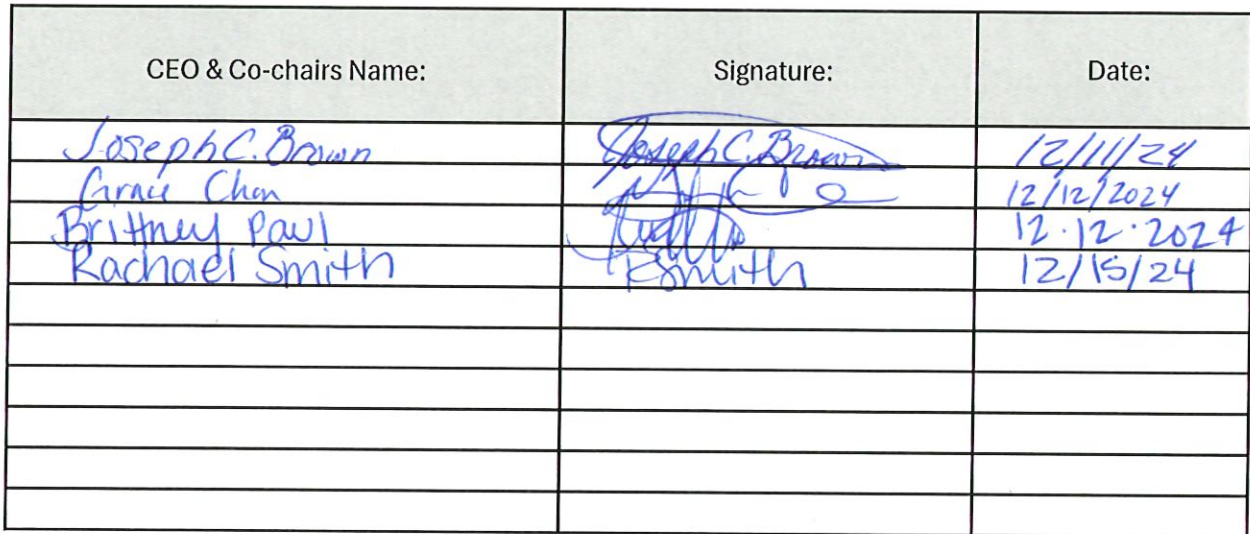 CEO & Co-chairs Name: Signature: Date:
Joseph C. Brown Joseph C. Brown 12/11/24
Grace Chan 12/12/2024
Brittney Paul 12.12.2024
Rachael Smith RSmith 12/15/24